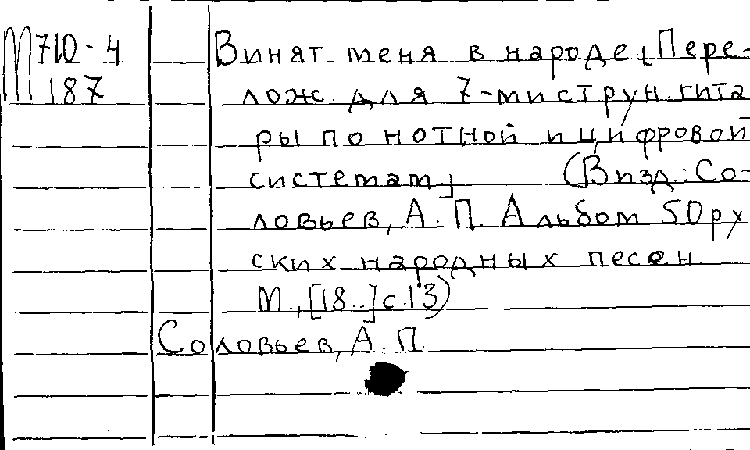 М 710-4
187
Винят меня в народе [Пере-
лож. для 7-миструн. гита
ры по нотной и цифровой
системам] (В изд.: Со-
ловьев, А. П. Альбом 50 ру
ских народных песен
М., [18..] с. 13)
Соловьев, А. П.